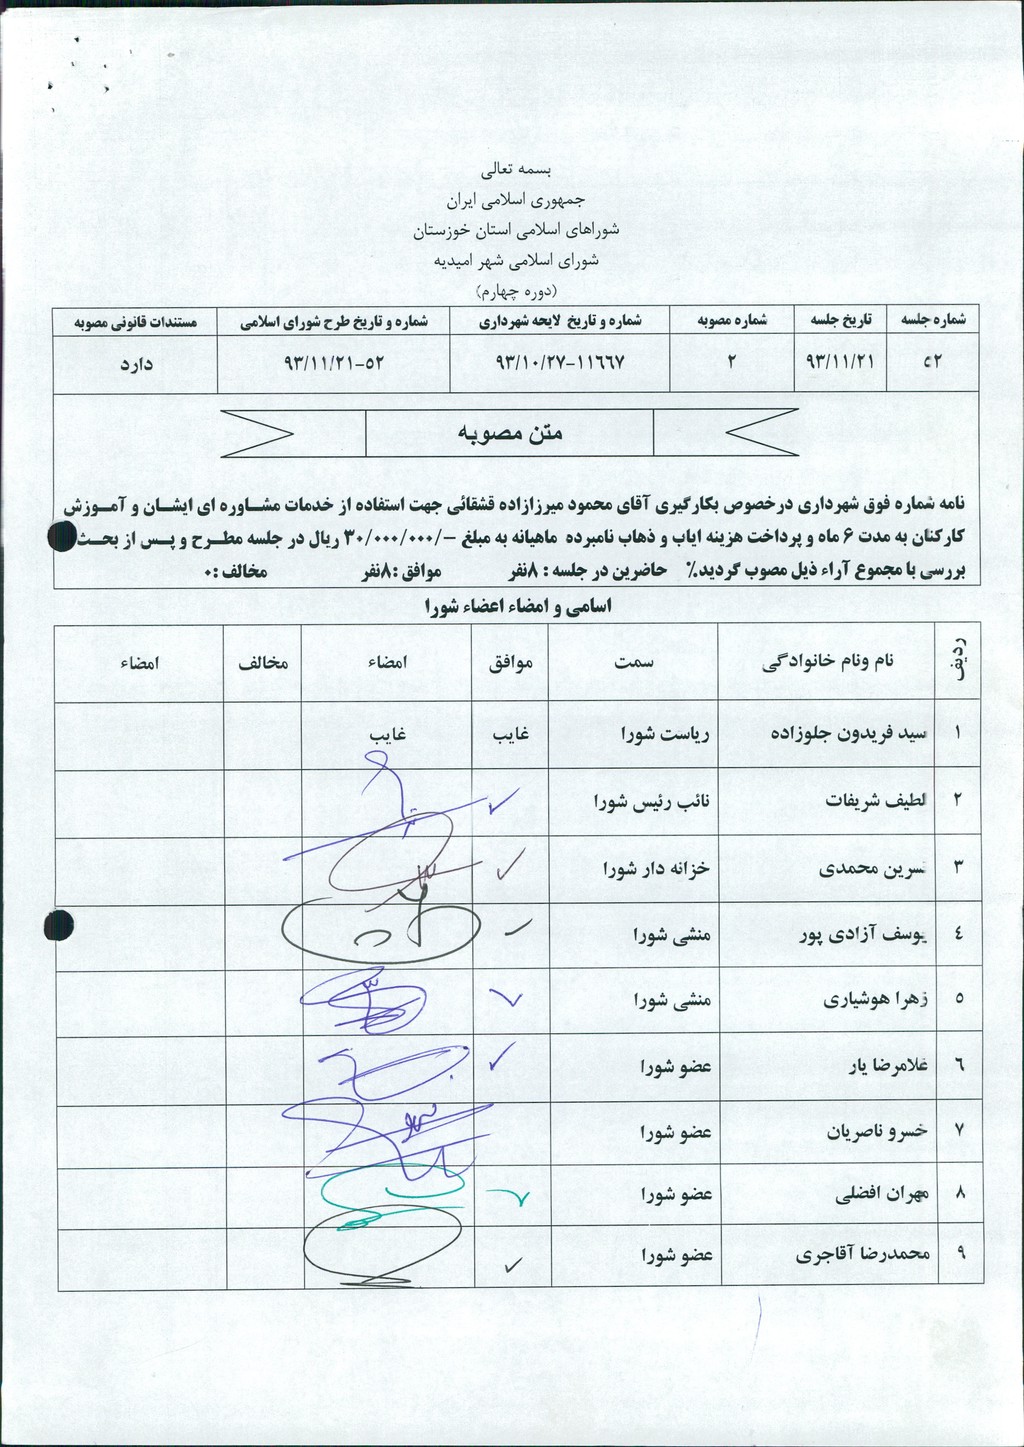 بسمه تعالی
جمهوری اسلامی ایران
شوراهای اسلامی استان خوزستان
شورای اسلامی شهر امیدیه
(دوره چهارم)
شماره جلسه تاریخ جلسه شماره مصوبه شماره و تاریخ لایحه شهرداری شماره و تاریخ طرح شورای اسلامی مستندات قانونی مصوبه
۵۲ ۹۳/۱۱/۲۱ ۲ ۹۳/۱۰/۲۷-۱۱۶۶۷ ۹۳/۱۱/۲۱-۵۲ دارد
متن مصوبه
نامه شماره فوق شهرداری درخصوص بکارگیری آقای محمود میرزازاده قشقائی جهت استفاده از خدمات مشاوره ای ایشان و آموزش
کارکنان به مدت ۶ ماه و پرداخت هزینه ایاب و ذهاب نامبرده ماهیانه به مبلغ -/۳۰/۰۰۰/۰۰۰ ریال در جلسه مطرح و پس از بحث
بررسی با مجموع آراء ذیل مصوب گردید٪ حاضرین در جلسه : ۸نفر موافق :۸نفر مخالف :۰
اسامی و امضاء اعضاء شورا
ردیف نام ونام خانوادگی سمت موافق امضاء مخالف امضاء
۱ سید فریدون جلوزاده ریاست شورا غایب غایب
۲ لطیف شریفات نائب رئیس شورا ✓
۳ نسرین محمدی خزانه دار شورا ✓
۴ یوسف آزادی پور منشی شورا ✓
۵ زهرا هوشیاری منشی شورا ✓
۶ غلامرضا یار عضو شورا ✓
۷ خسرو ناصریان عضو شورا
۸ مهران افضلی عضو شورا ✓
۹ محمدرضا آقاجری عضو شورا ✓